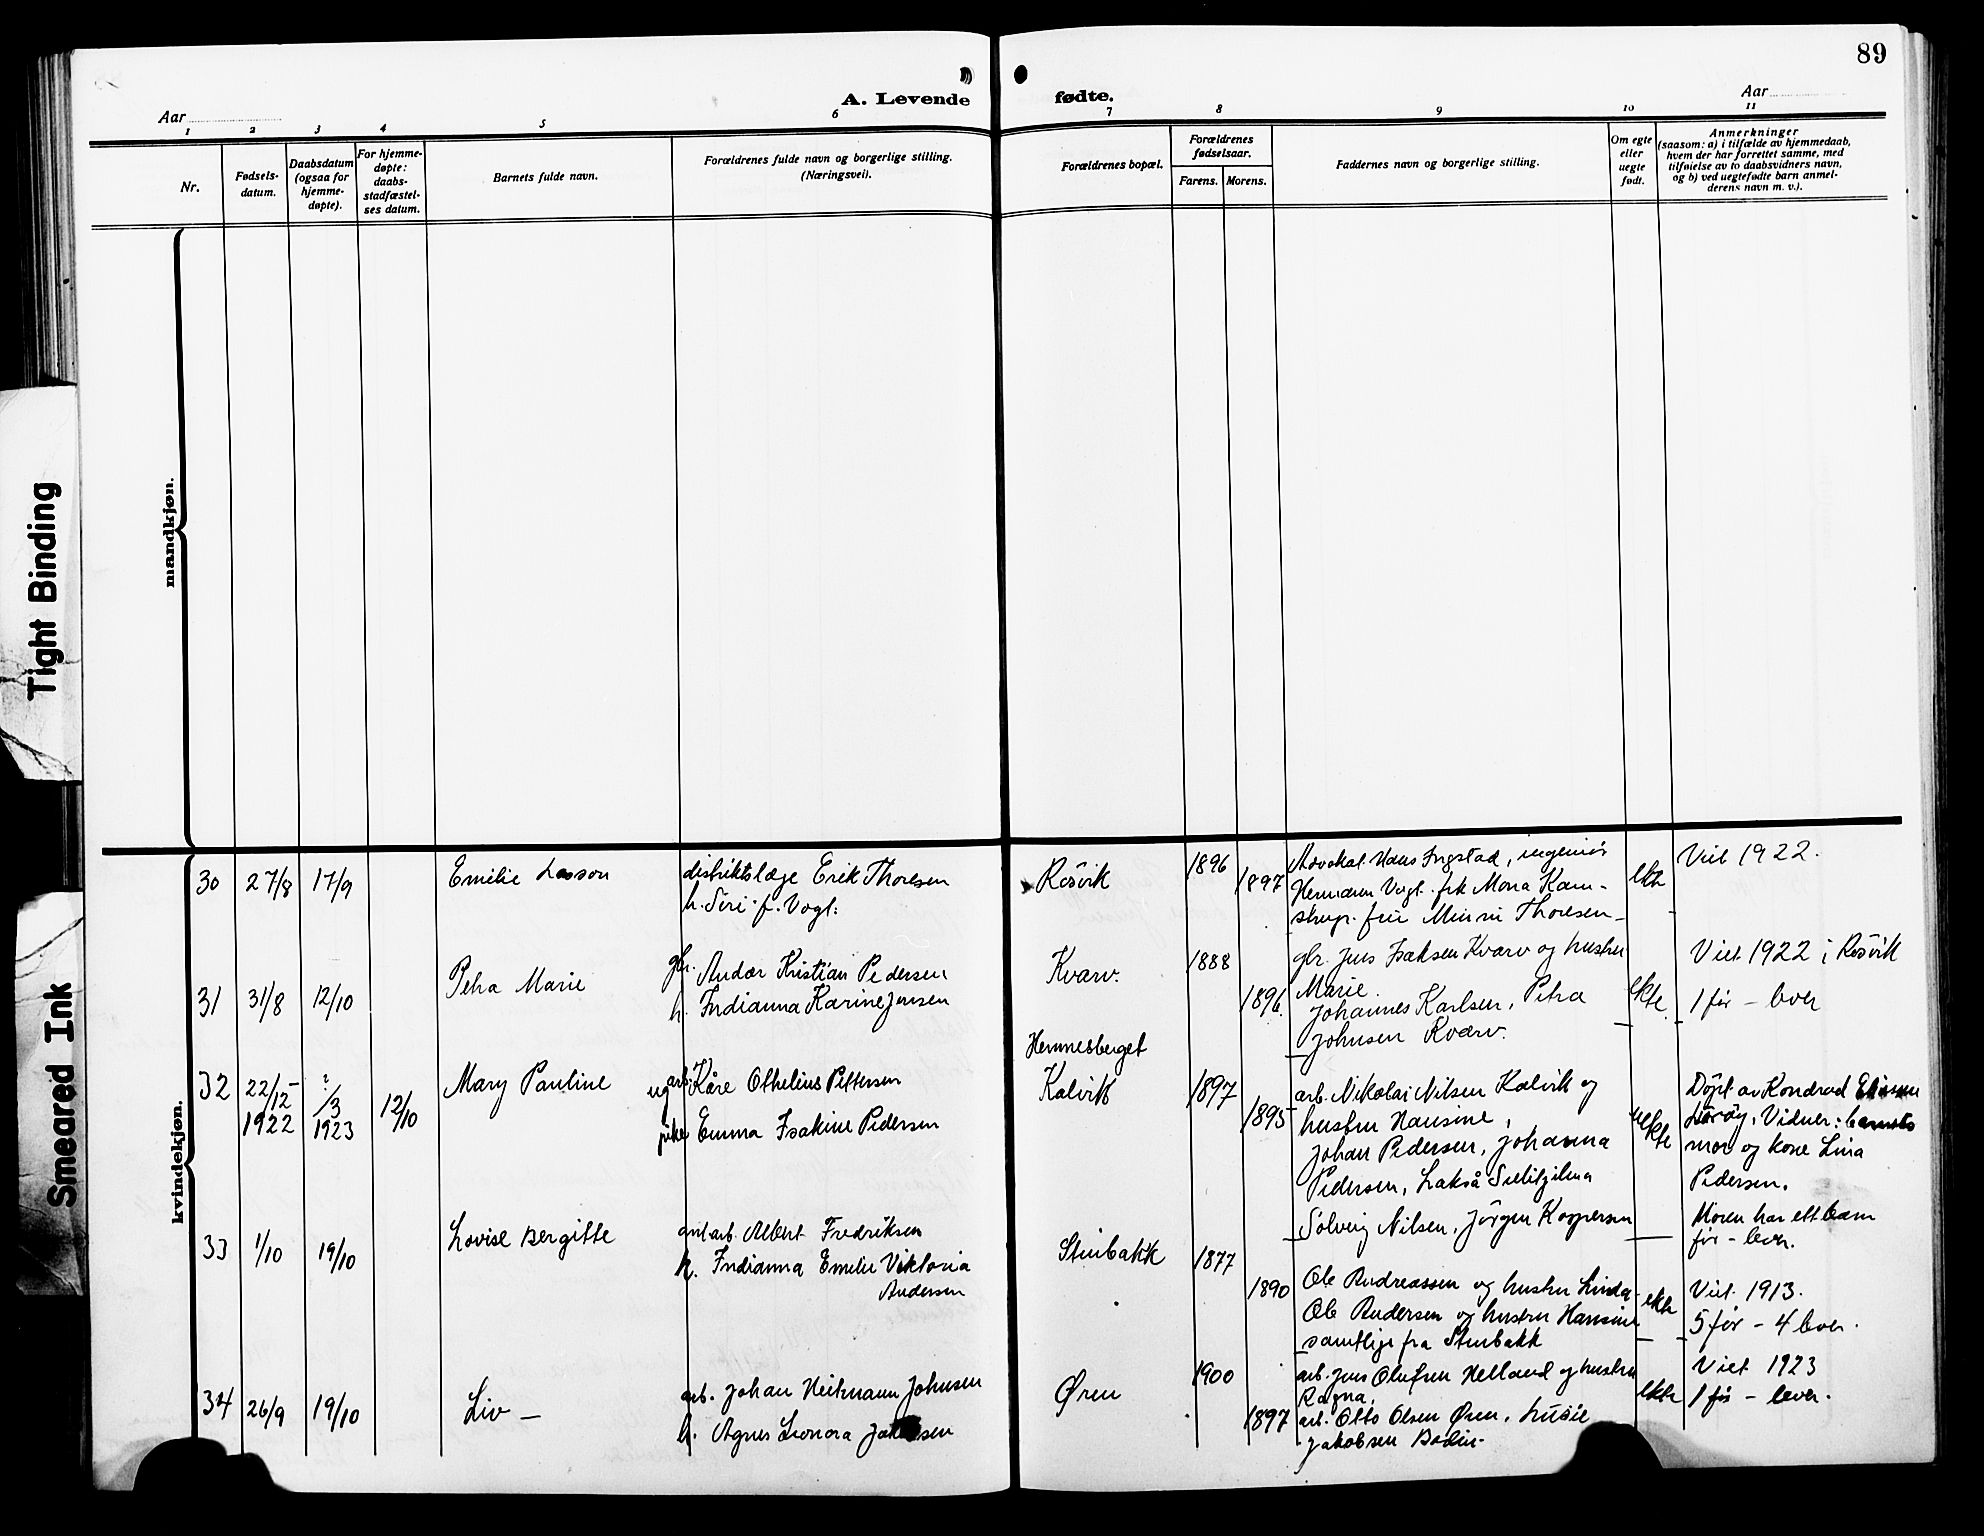 89
A. Levende fødte.
Aar
Aar
1 2 3 4 5 6 7 8 9 10 11
Nr.
Fødsels-
datum.
Daabsdatum
(ogsaa for
hjemme-
døpte).
For hjemme-
døpte:
daabs-
stadfæstel-
ses datum.
Barnets fulde navn.
Forældrenes fulde navn og borgerlige stilling.
(Næringsvei).
Forældrenes bopæl.
Forældrenes
fødselsaar.
Farens. Morens.
Faddernes navn og borgerlige stilling.
Om egte
eller
uegte
født.
Anmerkninger
(saasom: a) i tilfælde av hjemmedaab,
hvem der har forrettet samme, med
tilføielse av to daabsvidners navn,
og b) ved uegtefødte barn anmel-
derens navn m. v.).
mandkjøn.
kvindekjøn.
Tight Binding
Smeared Ink
30 27/8 17/9
Emilie Lasson
distriktslæge Erik Thoresen
h. Siri f. Vogt:
Røsvik
1896
1897
Advokat Hans Ingstad, ingeniør
Hermann Vogt. frk Mona Kam-
strup. frue Minni Thoresen
ekte
Viet 1922.
31 31/8 12/10
Petra Marie
gbr. Andor Kristian Pedersen
h. Indianna Karine Jensen
Kvarv.
1888
1896
gbr. Jens Isaksen Kvarv og hustru
Marie.
Johannes Karlsen, Petra
Johnsen Kvarv.
ekte.
Viet 1922 i Røsvik
1 før - lever
32 22/12 1922
? /3 1923
12/10
Mary Pauline
ug arb. Kåre Othelius Pettersen
pike Emma Isakine Pedersen
Hemnesberget
Kalvik
1897
1895
arb. Nikolai Nilsen Kalvik og
hustru Hansine,
Johan Pedersen, Johanna
Pedersen, Lakså
Solveig Nilsen, Jørgen Kaspersen
uekte
Døpt av Kondrad
Vidner: barnets
mor og kone Lina
Pedersen.
Moren har ett barn
før - lever.
33 1/10 19/10
Lovise Bergitte
arb. Albert Fredriksen
h. Indianna Emelie Viktoria
Andersen
Stenbakk
1877
1890
Ole Andreassen og hustru Linda
Ole Andersen og hustru Hansine
samtlige fra Stenbakk
ekte
Viet 1913.
5 før - 4 lever.
34 26/9 19/10
Liv -
arb. Johan Heitmann Johnsen
h. Agnes Leonora
Øren
1900
1897
arb. Jens Olufsen Helland og hustru
Ragna,
arb. Otto Olsen Øren,
Jakobsen Bodin.
ekte
Viet 1923
1 før - lever.